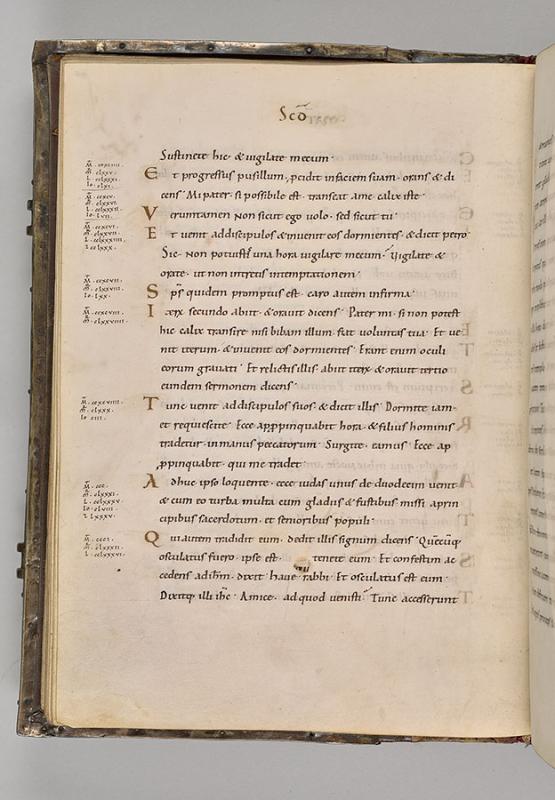 Scō
Sustinete hic · & vigilate mecum ·
Et progressus pusillum, pcidit in faciem suam · orans & di
cens · Mi pater · si possibile est · transeat a me calix iste ·
Veruntamen non sicut ego volo · sed sicut tu ·
Et venit ad discipulos & invenit eos dormientes · & dicit petro ·
Sic · non potuistis una hora vigilare mecum · Vigilate &
orate · ut non intretis in temptationem ·
Sps quidem promptus est · caro autem infirma ·
Iterum secundo abiit & oravit dicens · Pater mi · si non potest
hic calix transire nisi bibam illum · fiat voluntas tua · Et ve
nit iterum · & invenit eos dormientes · Erant enim oculi
eorum gravati · Et relictis illis abiit iterum · & oravit tertio
eundem sermonem dicens ·
Tunc venit ad discipulos suos · & dicit illis · Dormite iam ·
et requiescite · Ecce appropinquabit hora · & filius hominis
tradetur in manus peccatorum · Surgite · eamus · Ecce ap
propinquabit · qui me tradet ·
Adhuc ipso loquente · ecce iudas unus de duodecim venit
& cum eo turba multa cum gladiis & fustibus · missi a prin
cipibus sacerdotum · et senioribus populi ·
Qui autem tradidit eum · dedit illis signum dicens · Quēcūq
osculatus fuero · ipse est · tenete eum · Et confestim ac
cedens ad ihm · dixit · have rabbi · Et osculatus est eum ·
Dixitq illi ihc · Amice · ad quod venisti · Tunc accesserunt